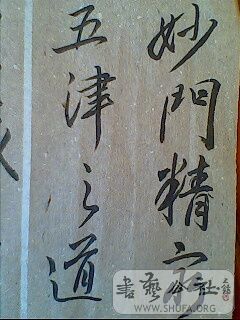 妙門精
五津之道
書藝公社
WWW.SHUFA.ORG